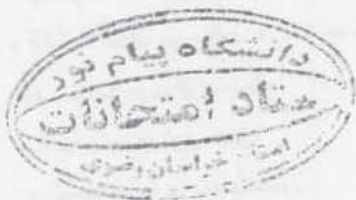 دانشگاه پیام نور
ستاد امتحانات
خراسان رضوی